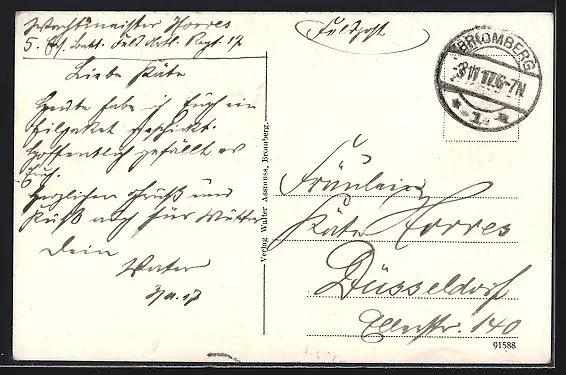 Wachtmeister Horres
5. Ers. Batl. Feld Artl. Regt. 17
Feldpost
BROMBERG
3 11 17. 6-7 N
* 1 a
Liebe Käte
Heute habe ich Euch ein
Eilpaket geschickt.
Hoffentlich gefällt es
Euch.
Herzlichen Gruß und
Kuß auch für Mutter
Dein
Vater
3/11.17
Verlag Walter Assmuss, Bromberg.
Fräulein
Käte Horres
Düsseldorf
Ellerstr. 140
91588